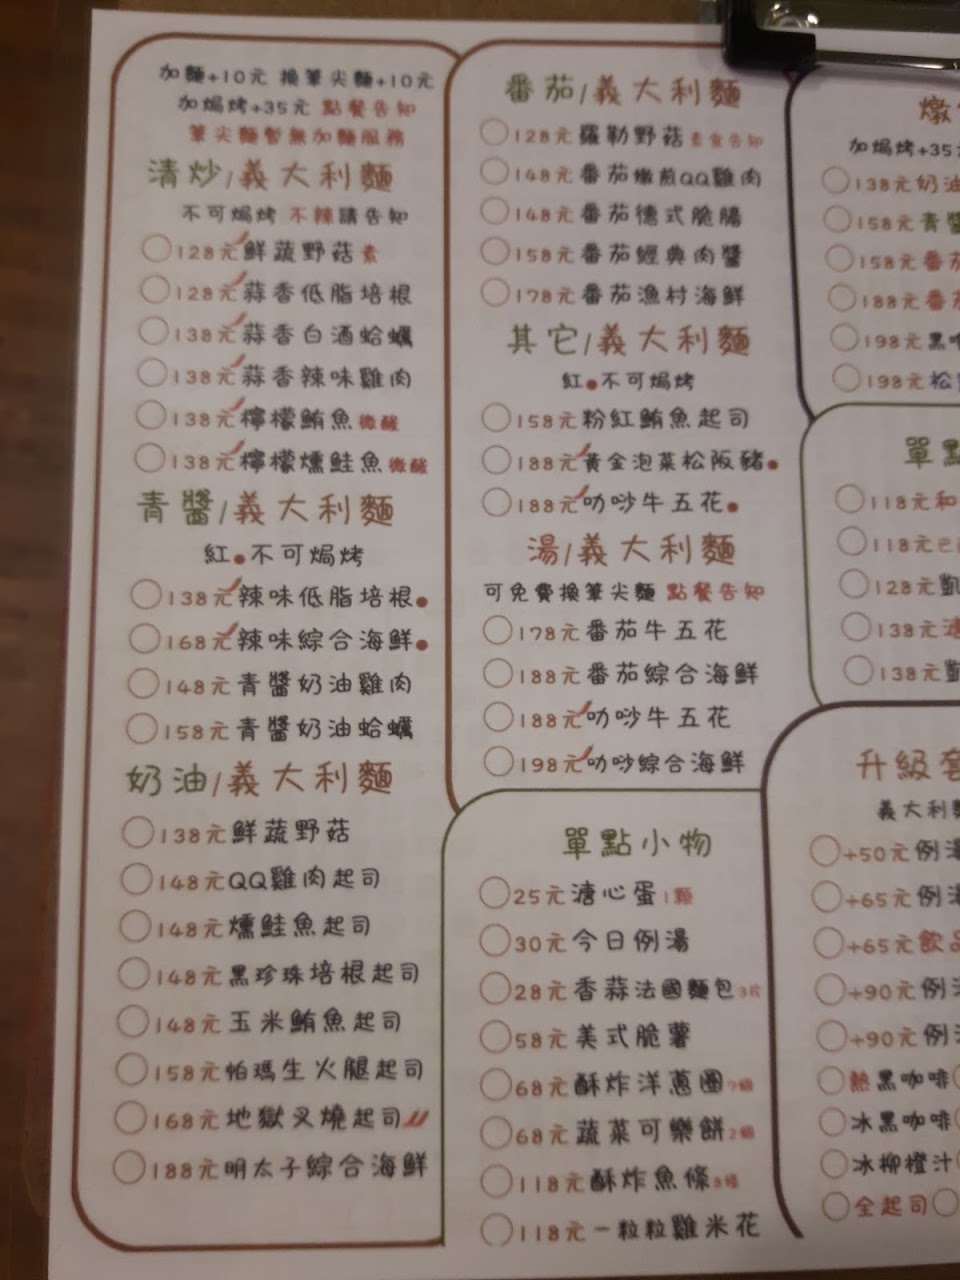 加麵+10元 換筆尖麵+10元
加焗烤+35元 點餐告知
筆尖麵暫無加麵服務
清炒/義大利麵
不可焗烤 不辣請告知
128元鮮蔬野菇 素
128元蒜香低脂培根
138元蒜香白酒蛤蠣
138元蒜香辣味雞肉
138元檸檬鮪魚 微酸
138元檸檬燻鮭魚 微酸
青醬/義大利麵
紅●不可焗烤
138元辣味低脂培根●
168元辣味綜合海鮮●
148元青醬奶油雞肉
158元青醬奶油蛤蠣
奶油/義大利麵
138元鮮蔬野菇
148元QQ雞肉起司
148元燻鮭魚起司
148元黑珍珠培根起司
148元玉米鮪魚起司
158元帕瑪生火腿起司
168元地獄叉燒起司
188元明太子綜合海鮮
番茄/義大利麵
128元羅勒野菇 素食告知
148元番茄嫩煎QQ雞肉
148元番茄德式脆腸
158元番茄經典肉醬
178元番茄漁村海鮮
其它/義大利麵
紅●不可焗烤
158元粉紅鮪魚起司
188元黃金泡菜松阪豬●
188元叻沙牛五花●
湯/義大利麵
可免費換筆尖麵 點餐告知
178元番茄牛五花
188元番茄綜合海鮮
188元叻沙牛五花
198元叻沙綜合海鮮
單點小物
25元溏心蛋 1顆
30元今日例湯
28元香蒜法國麵包 3片
58元美式脆薯
68元酥炸洋蔥圈
68元蔬菜可樂餅 2個
118元酥炸魚條 8條
118元一粒粒雞米花
燉
加焗烤+35
138元奶油
158元青醬
158元番茄
188元番茄
198元黑
198元松
單點
118元和
118元
128元凱
138元
138元
升級套
義大利麵
+50元例湯
+65元例湯
+65元飲品
+90元例
+90元例
熱黑咖啡
冰黑咖啡
冰柳橙汁
全起司